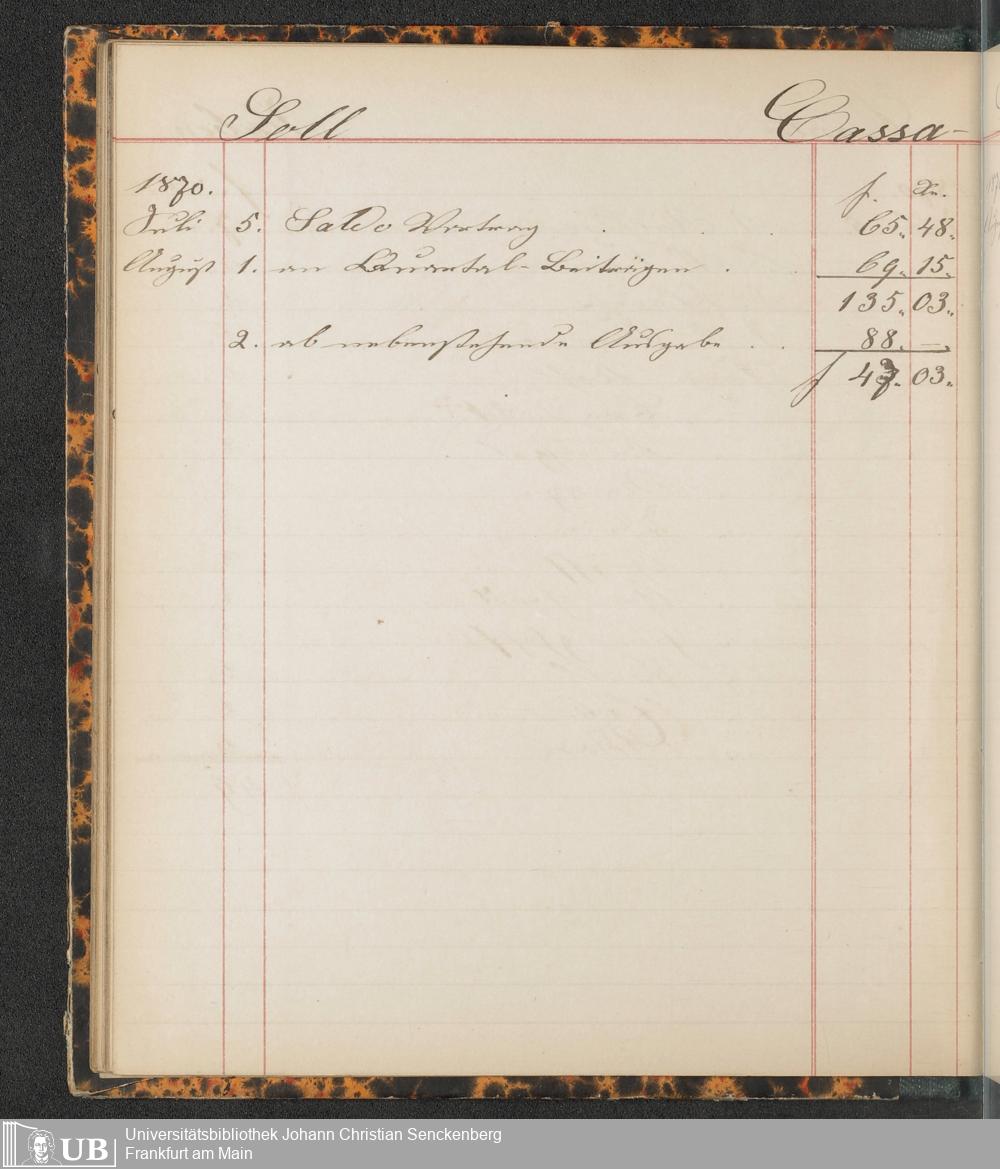 Soll Cassa-
1870. f. Xr.
Juli 5. Saldo Vortrag . . . 65. 48.
August 1. an Quartal-Beiträgen . . 69. 15.
135. 03.
2. ab nebenstehende Ausgabe . . 88. —.
f 47. 03.
UB Universitätsbibliothek Johann Christian Senckenberg
Frankfurt am Main